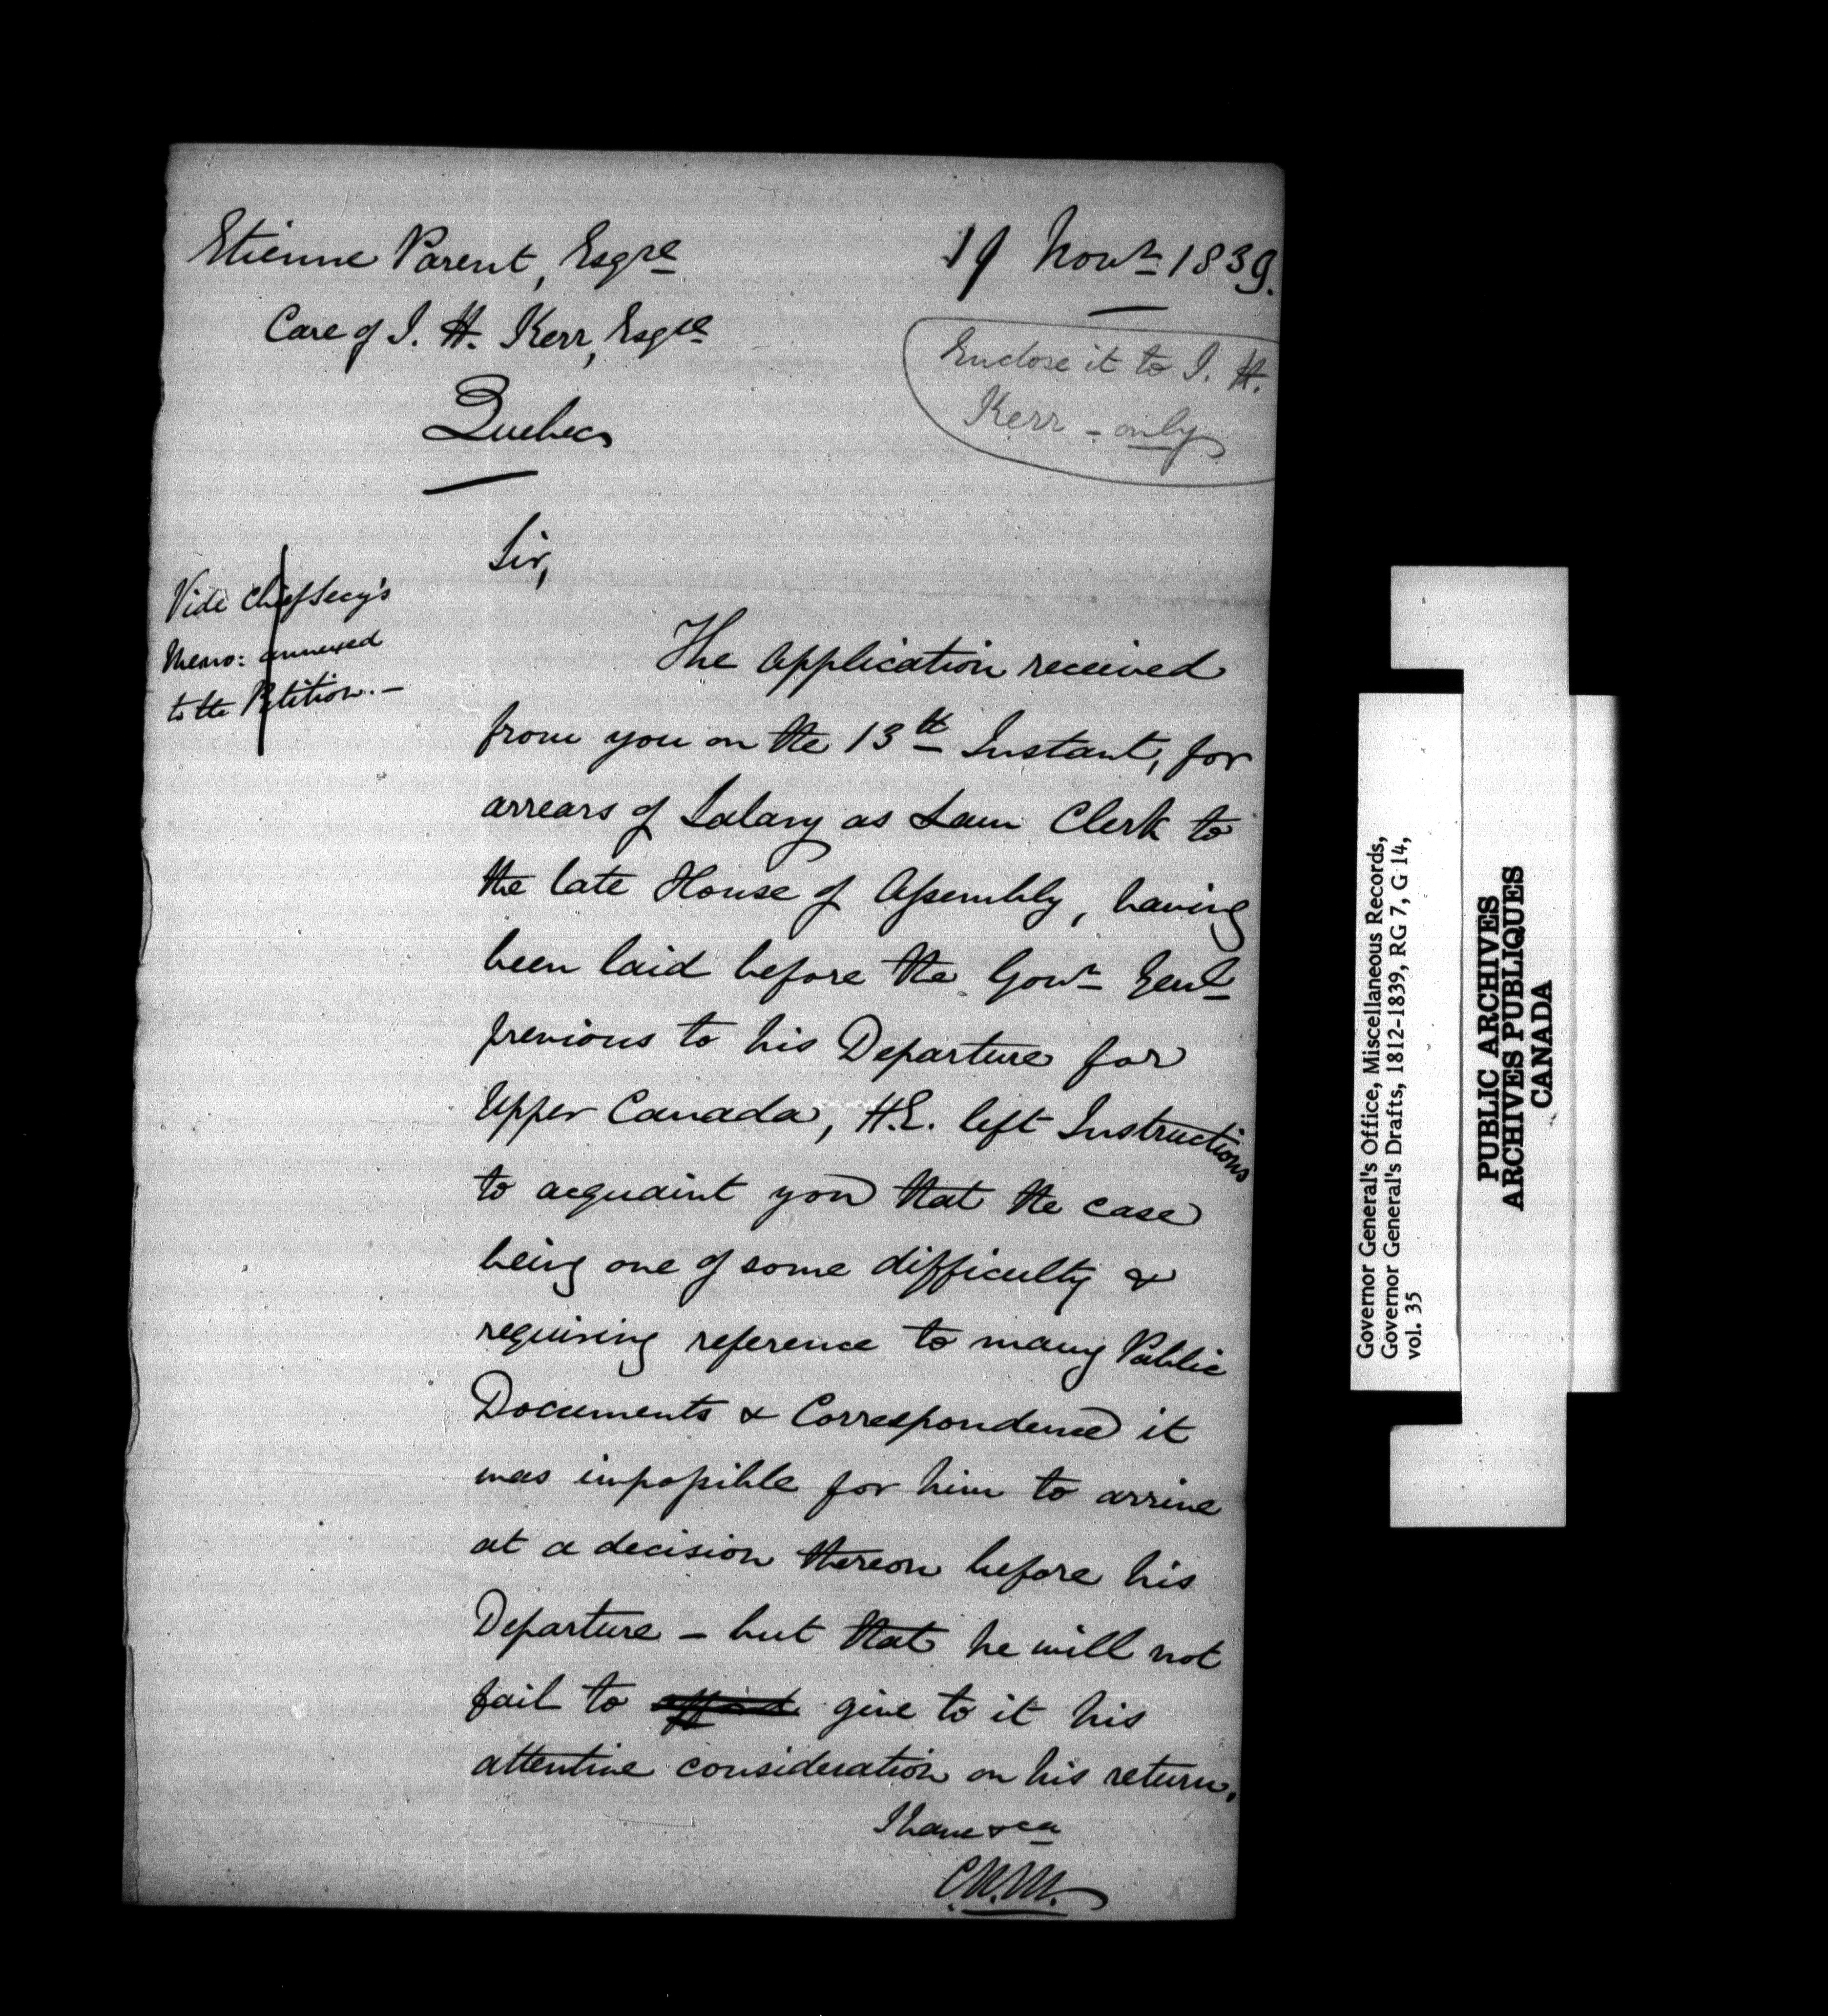 Etienne Parent, Esqre
19 Novr 1839.
Care of J. H. Kerr, Esqre
Quebec
Enclose it to J. H.
Kerr - only
Sir,
Vide Chief Secy's
Memo: annexed
to the Petition. -
The Application received
from you on the 13th Instant, for
arrears of Salary as Law Clerk to
the late House of Assembly, having
been laid before the Govr Genl
previous to his Departure for
Upper Canada, H.E. left Instructions
to acquaint you that the case
being one of some difficulty &
requiring reference to many Public
Documents & Correspondence it
was impossible for him to arrive
at a decision thereon before his
Departure - but that he will not
fail to afford give to it his
attentive consideration on his return.
I have &ca
C.M.M.
Governor General's Office, Miscellaneous Records,
Governor General's Drafts, 1812-1839, RG 7, G 14,
vol. 35
PUBLIC ARCHIVES
ARCHIVES PUBLIQUES
CANADA